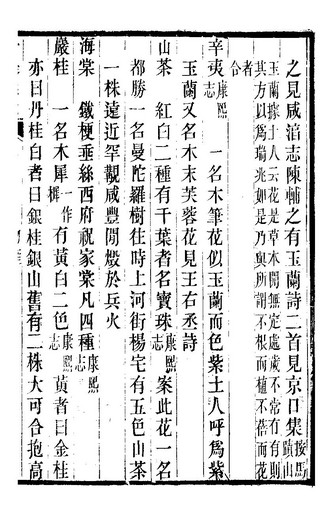 之見咸淳志陳輔之有玉蘭詩二首見京口集按馬蹟山
玉蘭據土人云花是草本開無定處歲不常有有則
其方以爲瑞兆如是乃輿所謂不根而植不蓓而花
者
令
辛夷康熙志 一名木筆花似玉蘭而色紫土人呼爲紫
玉蘭又名木末芙蓉花見王右丞詩
山茶 紅白二種有千葉者名寶珠康熙志 案此花一名
都勝一名曼陀羅樹往時上河街楊宅有五色山茶
一株遠近罕觀咸豐閒燬於兵火
海棠 鐵梗垂絲西府祝家棠凡四種康熙志
巖桂 一名木犀一作樨有黃白二色康熙志 黃者曰金桂
亦曰丹桂白者曰銀桂銀山舊有二株大可合抱高